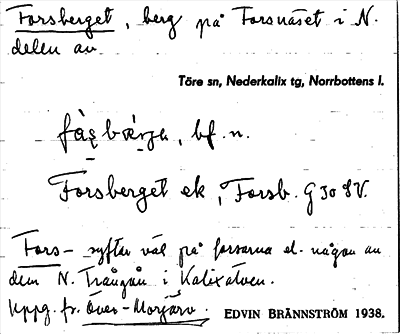 Forsberget, berg på Forsnäset i N.
delen av
Töre sn, Nederkalix tg, Norrbottens l.
bf. n.
Forsberget ek, Forsb. G 30 SV.
Fors- syftar väl på forsarna el. någon av
dem N. Trångån i Kalixälven.
Uppg. fr. Över-Morjärv. EDVIN BRÄNNSTRÖM 1938.